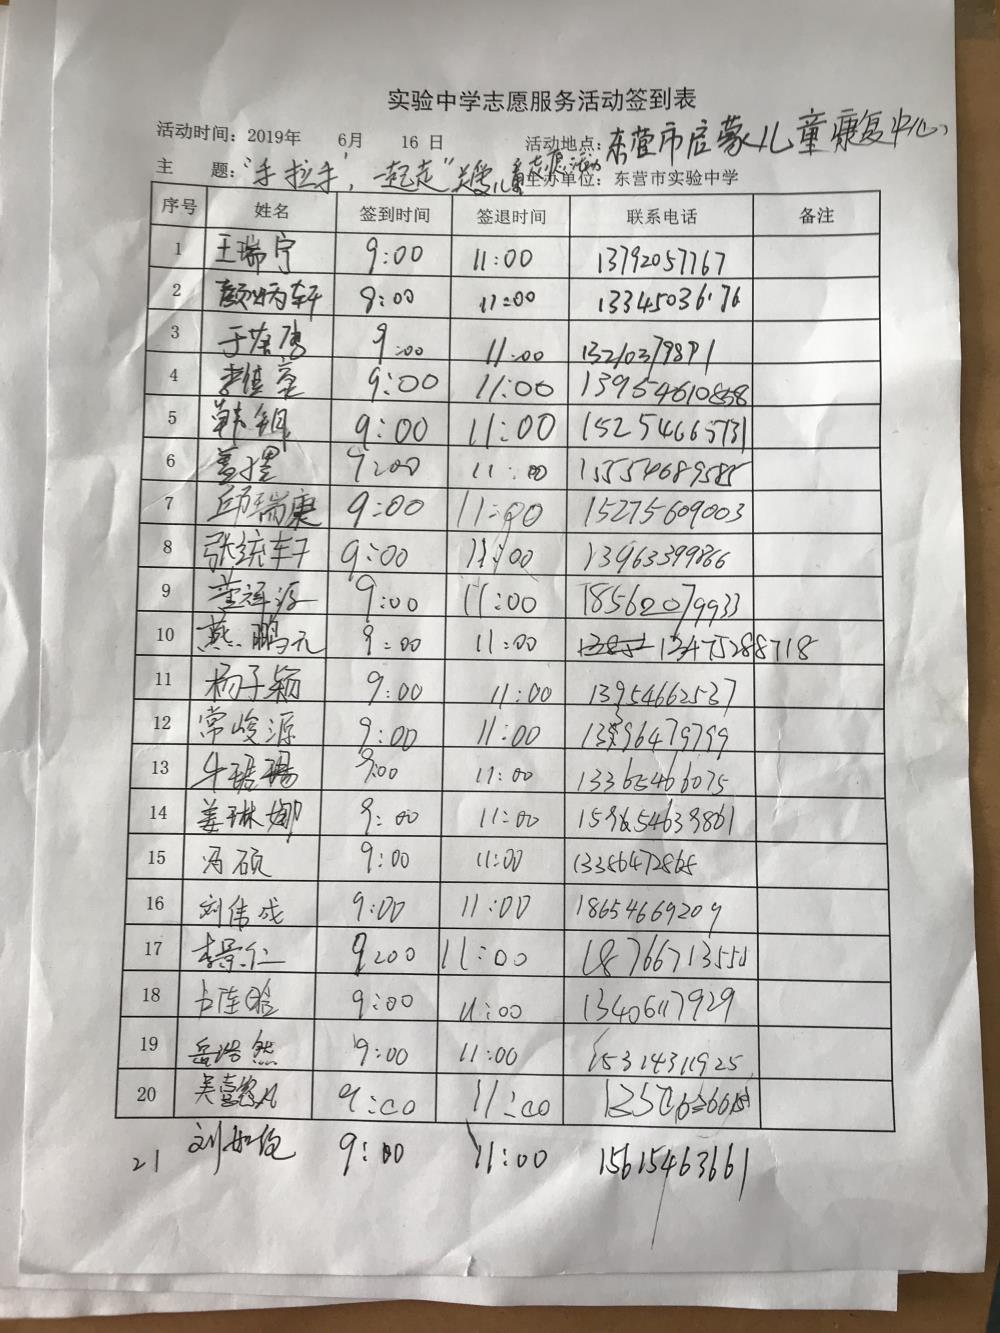 实验中学志愿服务活动签到表
活动时间：2019年 6月 16日 活动地点：东营市启蒙儿童康复中心
主 题：“手拉手，一起走”关爱儿童志愿活动 主办单位：东营市实验中学
序号 姓名 签到时间 签退时间 联系电话 备注
1 王瑞宁 9:00 11:00 13792057767
2 颜炳轩 9:00 11:00 13345036176
3 9:00 11:00
4 9:00 11:00 13954610858
5 韩钥 9:00 11:00 15254665731
6 9:00 11:00 15554689585
7 邱瑞康 9:00 11:00 15275609003
8 张统轩 9:00 11:00 13963399866
9 9:00 11:00 18562079933
10 燕鹏元 9:00 11:00 13475288718
11 杨子颖 9:00 11:00 13954662537
12 常峻源 9:00 11:00
13 9:00 11:00 13365466075
14 姜琳娜 9:00 11:00
15 冯硕 9:00 11:00 13356472865
16 刘伟成 9:00 11:00 18654669209
17 李景仁 9:00 11:00
18 9:00 11:00 13406117929
19 岳浩然 9:00 11:00 15314311925
20 9:00 11:00
21 9:00 11:00 15615463661